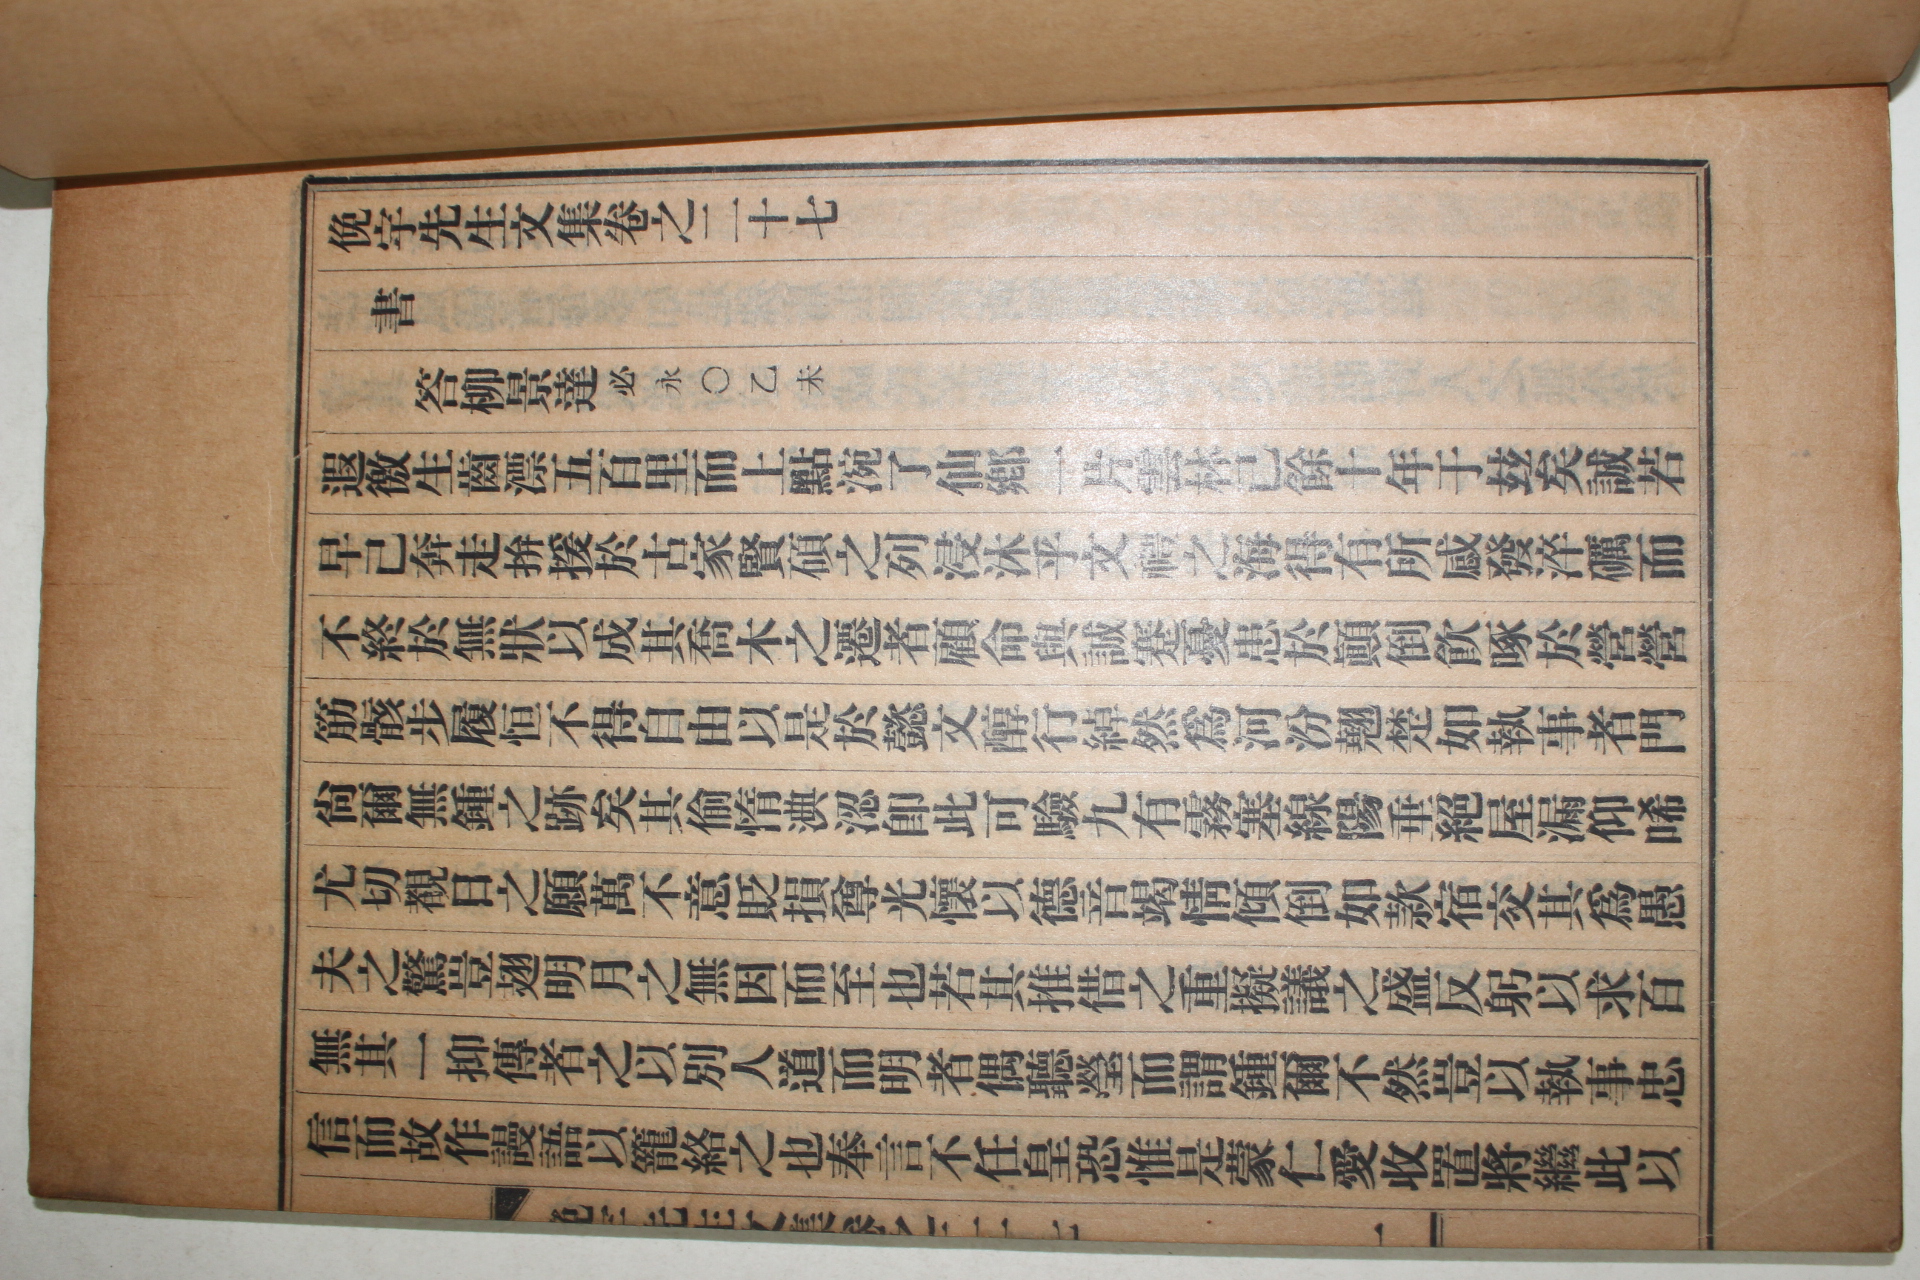 俛宇先生文集卷之二十七
書
答柳景達必永○乙未
遐徼生齒漂五百里而上點涴了仙鄉一片雲林已餘十年于玆矣誠若
早已奔走拚援於古家賢碩之列浸沐乎文禮之海得有所感發淬礪而
不終於無狀以成其喬木之遷者顧命與誠蹇憂患於顚倒飮啄於營營
筋骸步履恒不得自由以是於懿文醇行綽然爲河汾翹楚如執事者門
尙爾無鍾之跡矣其偷惰淟涊卽此可驗九有霧塞線陽垂絕屋漏仰唏
尤切覩日之願萬不意貶損尊光懷以德音竭情傾倒如款宿交其爲愚
夫之驚豈翅明月之無因而至也若其推借之重擬議之盛反躬以求百
無其一抑傳者之以別人道而明者偶聽瑩而謂鍾爾不然豈以執事忠
信而故作謾語以籠絡之也奉言不任皇恐惟是蒙仁愛收置將繼此以
俛宇先生文集卷之二十七 一